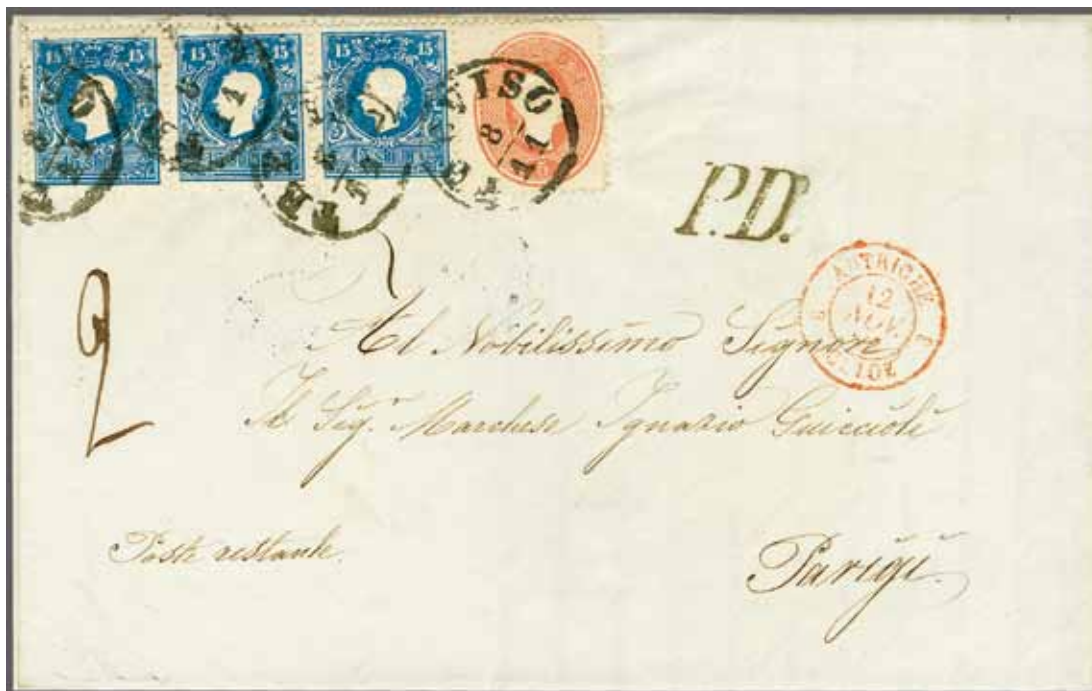 15 15 15 15 15 15
TREVISO
8
11
P.D.
2
AUTRICHE
12
NOV.
Al Nobilissimo Signore
Il Sig.r Marchese Ignazio Guiccioli
Poste restante.
Parigi.